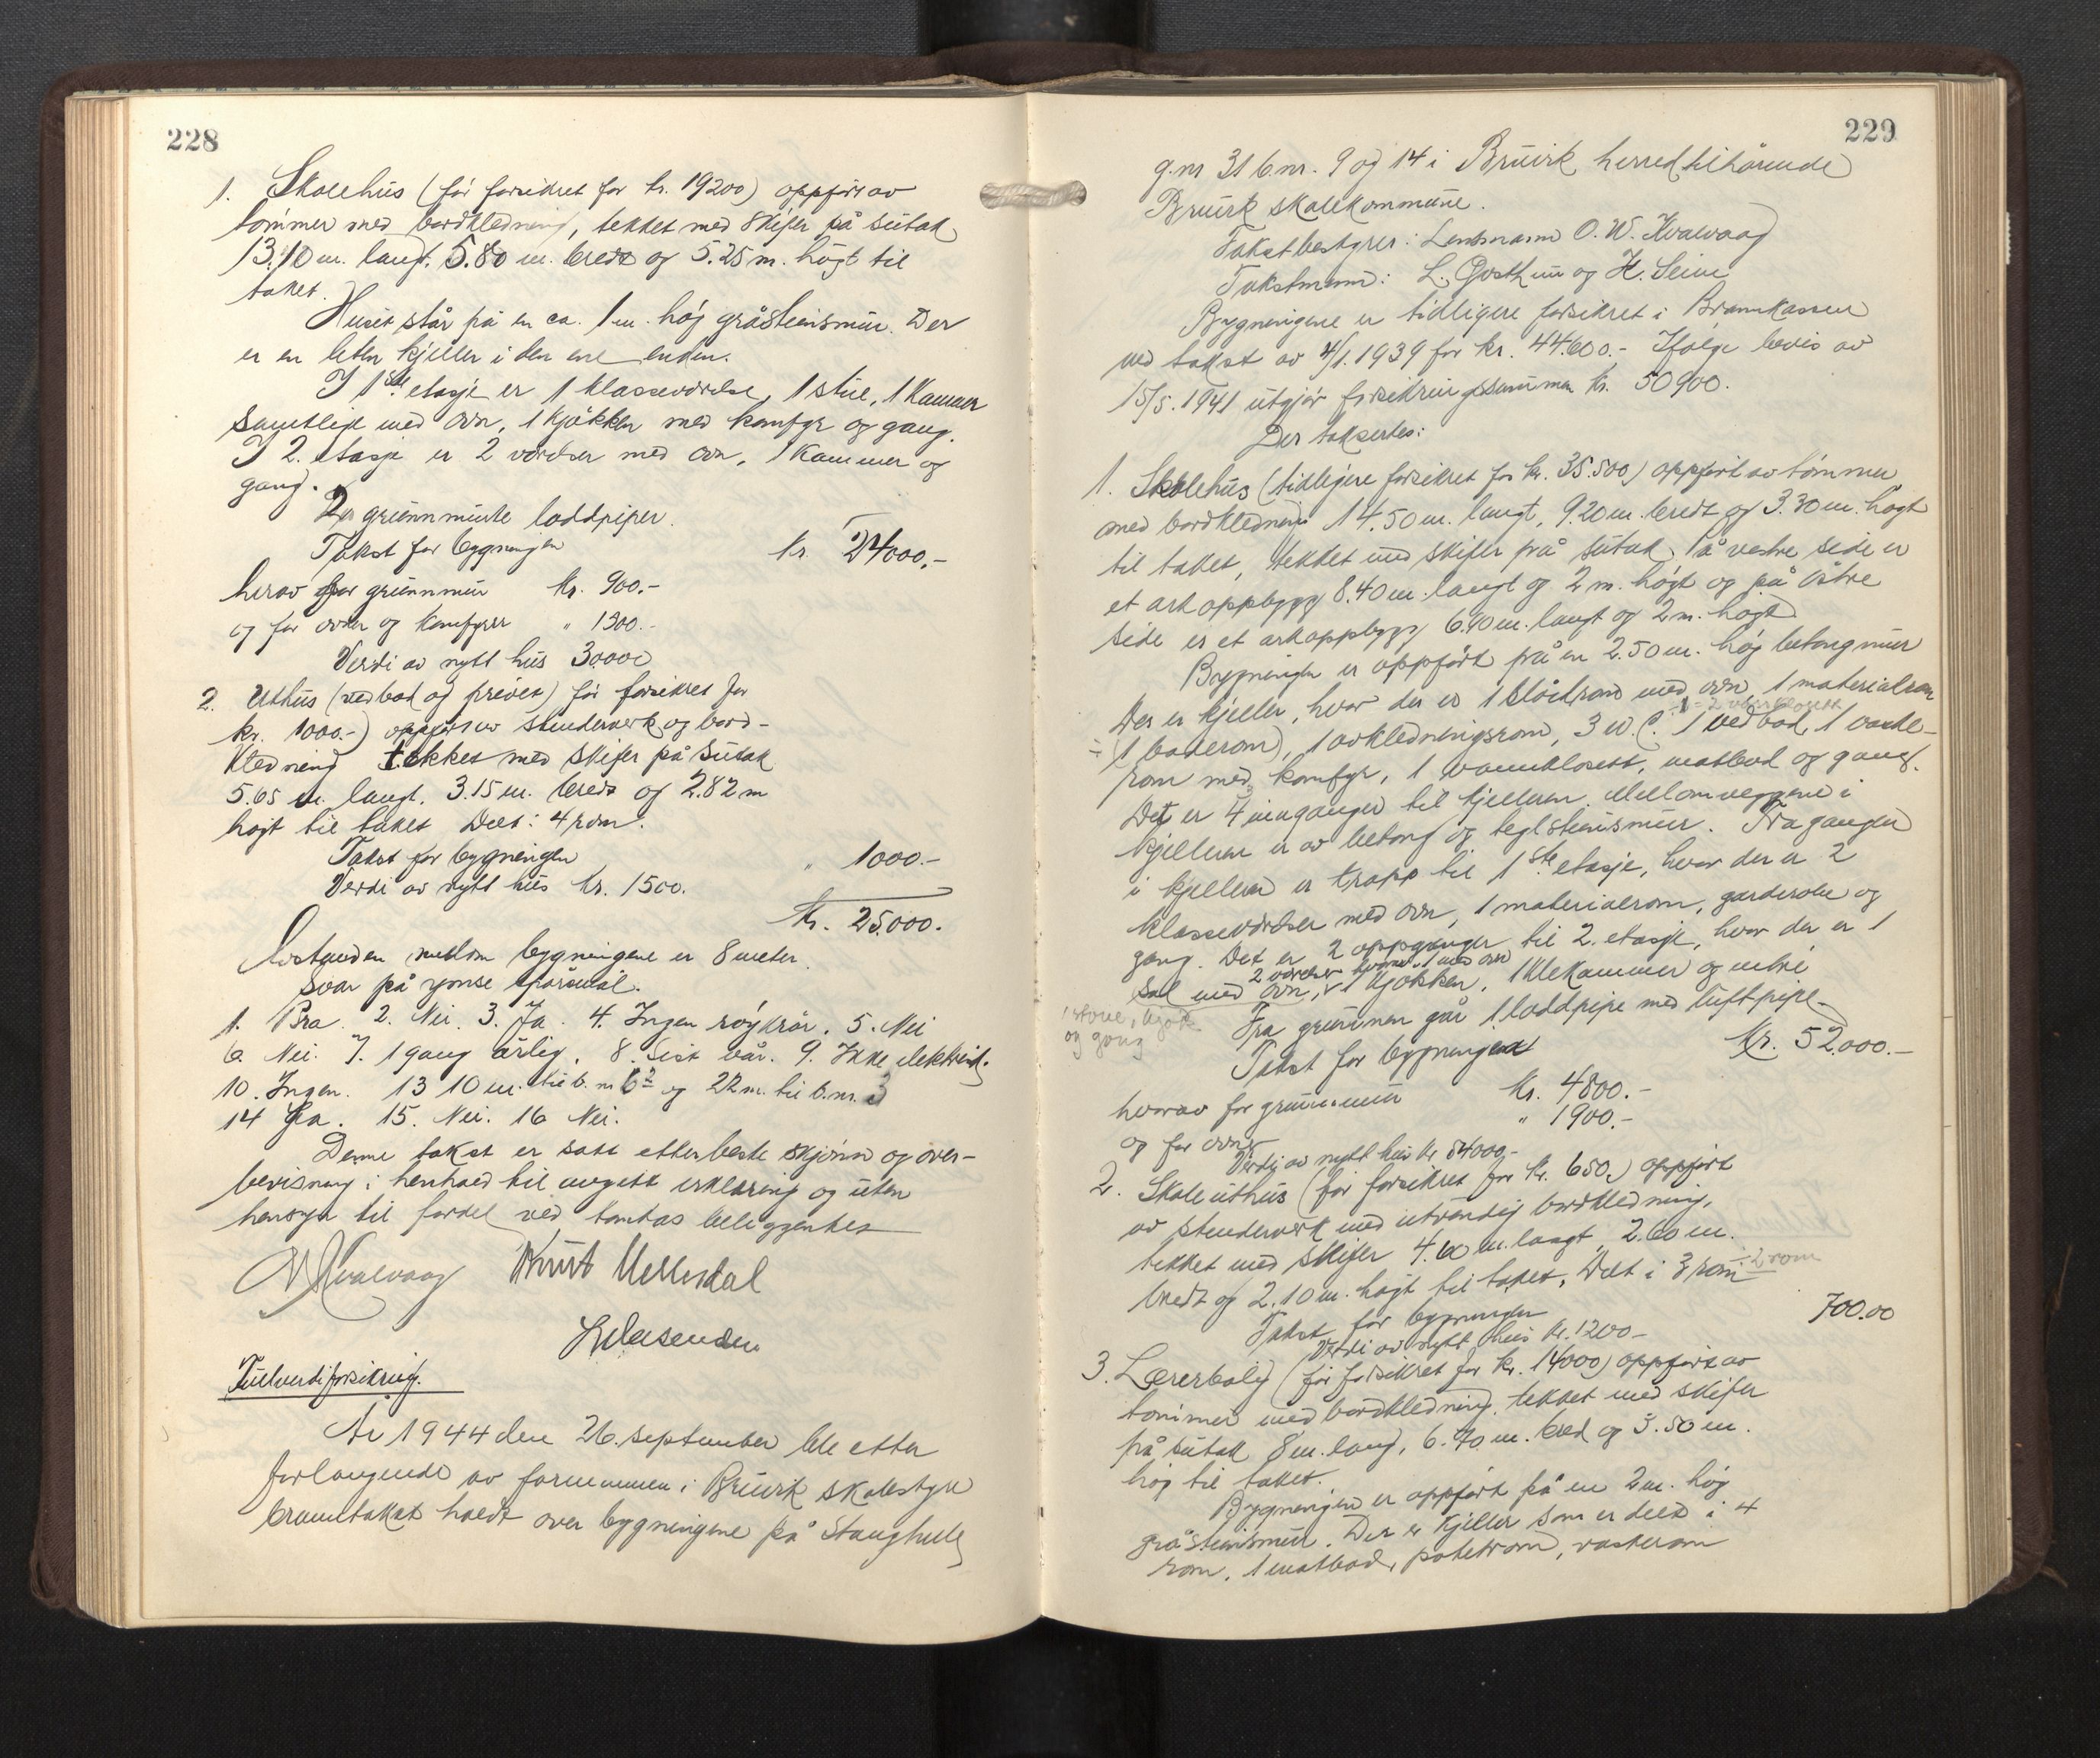 228
1. Skolehus (før forsikret for kr. 19200) oppført av
tømmer med bordkledning, tekket med skifer på sutak
13.10 m. langt. 5.80 m. bredt og 5.25 m. høgt til
taket.
Huset står på en ca. 1 m. høg gråsteinsmur. Der
er en liten kjeller i den ene enden.
I 1ste etasje er 1 klasseværelse, 1 stue, 1 kammer
samtlige med ovn, 1 kjøkken med komfyr og gang.
I 2. etasje er 2 værelser med ovn, 1 kammer og
gang.
2 grunnmurte loddpiper.
Takst for bygningen kr. 24000,-
herav for grunnmur kr. 900.-
og for ovner og komfyrer " 1300.-
Verdi av nytt hus 30000
2. Uthus (vedbod og priveter) før forsikret for
kr. 1000.-) oppført av stenderverk og bord-
kledning tekket med skifer på sutak
5.65 m. langt. 3.15 m. bredt og 2.82 m
høgt til taket Delt: 4 rom.
Takst for bygningen " 1000.-
Verdi av nytt hus kr. 1500.
kr. 25.000.
Avstanden mellom bygningene er 8 meter.
Svar på ymse spørsmål.
1. Bra. 2. Nei. 3. Ja. 4. Ingen røykrør. 5. Nei
6. Nei. 7. 1 gang årlig. 8. Sist vår. 9. Ikke elektrisk.
10. Ingen. 13 10 m. til b. nr. 6² og 22 m. til b. nr. 3
14 Ja. 15. Nei. 16 Nei.
Denne takst er satt etter beste skjønn og over-
bevisning i henhold til avgitt erklæring og uten
hensyn til fordel ved tomtas beliggenhet
O W Kvalvaag Knut Mellesdal
Fullverdiforsikring.
År 1944 den 26. september ble etter
forlangende av formannen i Bruvik skolestyre
branntakst holdt over bygningene på Stanghelle
229
g.nr 31 b.nr. 9 og 14 i Bruvik herred tilhørende
Bruvik skolekommune.
Takstbestyrer: Lensmann O. W. Kvalvaag
Takstmenn: L. Gjosthun og H. Seim
Bygningene er tidligere forsikret i Brannkassen
ved takst av 4/1. 1939 for kr. 44.600.- Ifølge bevis av
15/5. 1941 utgjør forsikringssummen kr. 50900.
Der takseres:
1. Skolehus (tidligere forsikret for kr. 35.500) oppført av tømmer
med bordkledning 14.50 m. langt, 9.20 m. bredt og 3.30 m. høgt
til taket, tekket med skifer på sutak. På vestre side er
et arkoppbygg 8.40 m. langt og 2 m. høgt og på østre
side er et arkoppbygg 6.90 m. langt og 2 m. høgt
Bygningen er oppført på en 2.50 m. høg betongmur
Der er kjeller, hvor der er 1 sløidrom med ovn, 1 materialrom
÷ (1 baderom), 1 avkledningsrom, 3 w.c. 1 vedbod, 1 vaske-
rom med komfyr, 1 vannklosett, matbod og gang.
Det er 4 innganger til kjelleren. Mellomveggene i
kjelleren er av betong og teglsteinsmur. Fra gangen
i kjelleren er trapp til 1ste etasje, hvor der er 2
klasseværelser med ovn, 1 materialrom, garderobe og
gang. Det er 2 oppganger til 2. etasje, hvor der er 1
2 værelser hvorav 1 med ovn
sal med ovn, 1 kjøkken, 1 klekammer og entre
1 stove, kjøk.
og gang
Fra grunnen går 1 loddpipe med luftpipe.
Takst for bygningen kr. 52.000.-
hvorav for grunnmur kr. 4800.-
og for ovner " 1900.-
Verdi av nytt hus kr 54000,-
2. Skoleuthus (før forsikret for kr. 650.) oppført
av stenderverk med utvendig bordkledning,
tekket med skifer 4.60 m. langt, 2.60 m.
bredt og 2.10 m. høgt til taket, Delt i 3 rom 2 rom
Takst for bygningen 700.00
Verdi av nytt hus kr. 1200-
3. Lærerbolig (før forsikret for kr. 14000) oppført av
tømmer med bordkledning, tekket med skifer
på sutak 8 m. lang, 6.70 m. bred og 5.50 m.
høg til taket.
Bygningen er oppført på en 2 m. høg
gråsteinsmur. Der er kjeller som er delt i 4
rom, 1 matbod, potetrom, vaskerom